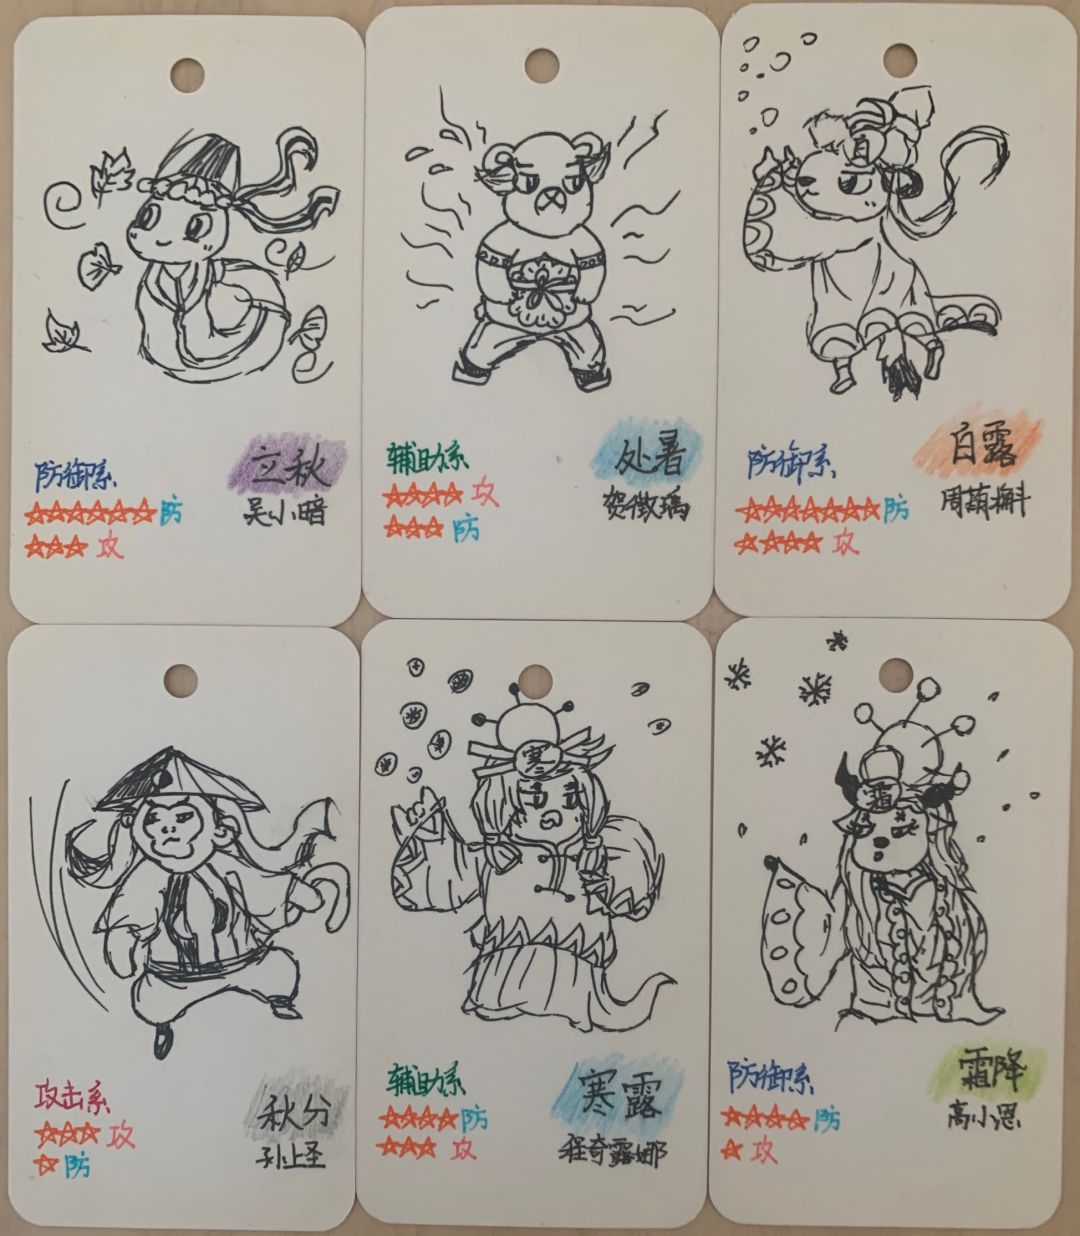 防御系
立秋
☆☆☆☆☆☆防
吴小暗
☆☆☆攻
辅助系
处暑
☆☆☆☆攻
贺徵瑀
☆☆☆防
白
防御系
白露
☆☆☆☆☆☆☆防
周葫槲
☆☆☆☆攻
攻击系
秋分
☆☆☆攻
孙上圣
☆防
寒
辅助系
寒露
☆☆☆☆防
程奇露娜
☆☆☆攻
霜
防御系
霜降
☆☆☆☆防
高小恩
☆攻